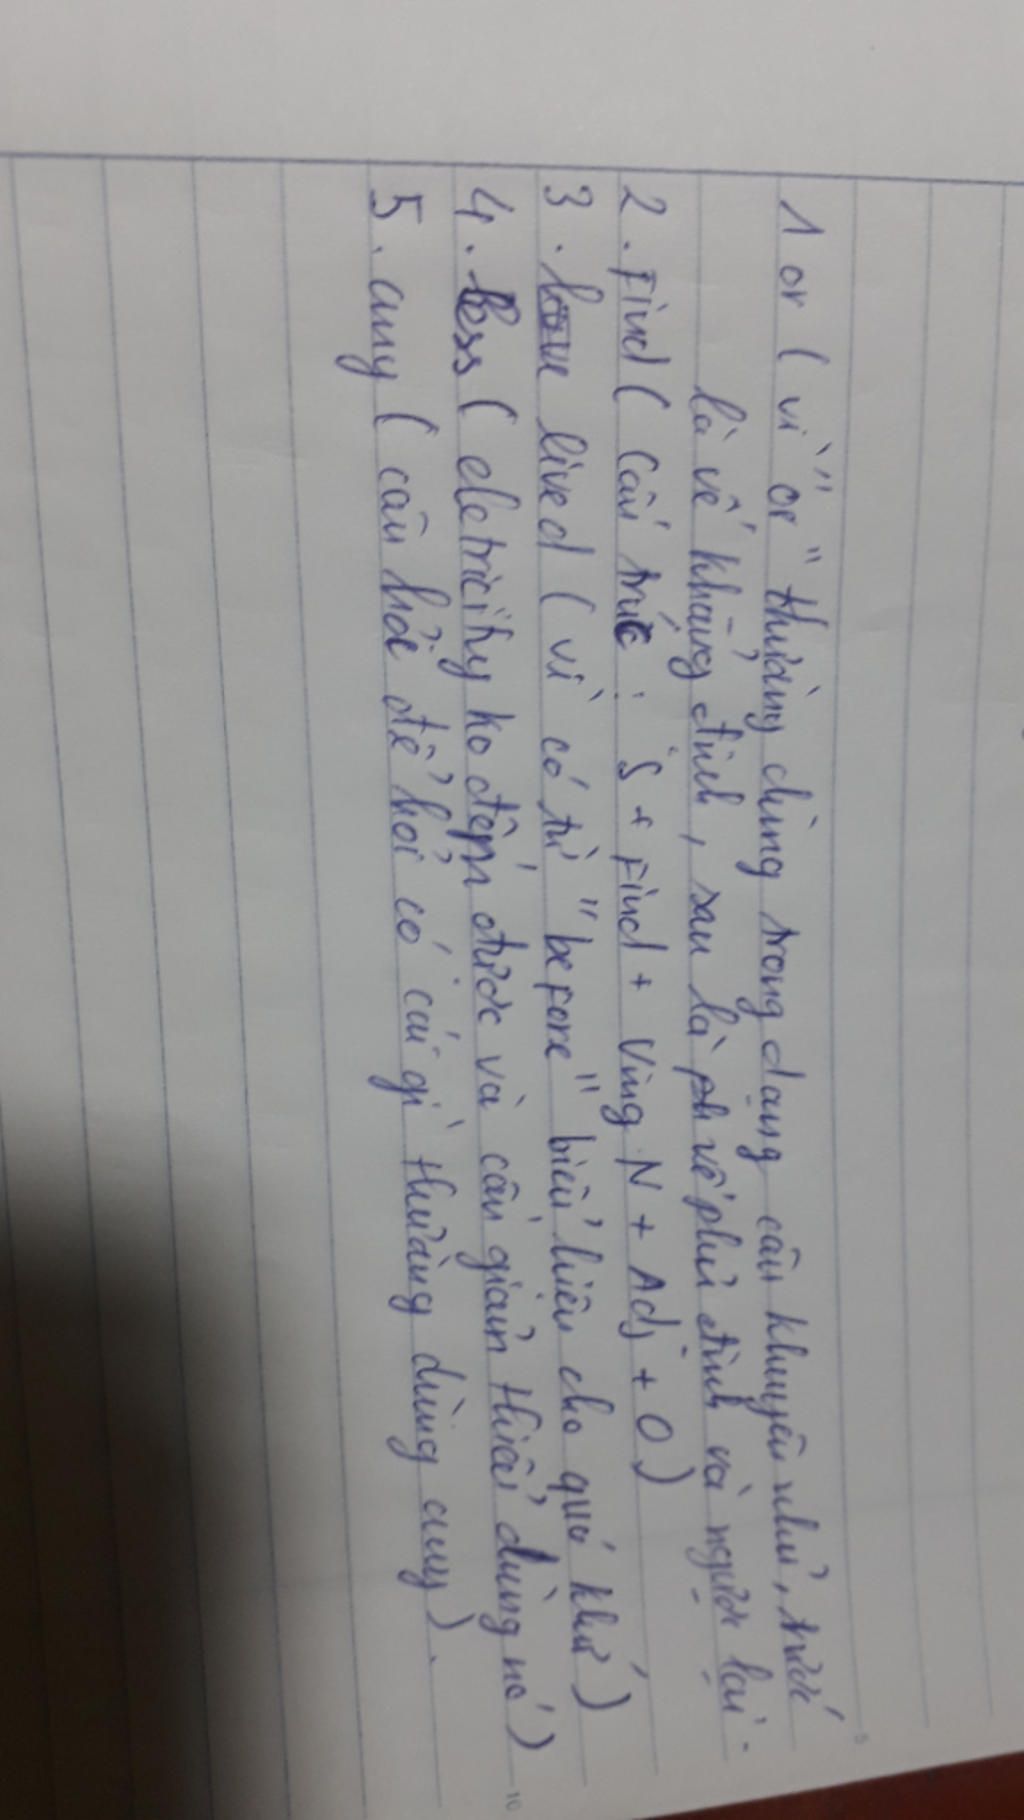 1 or ( vì " or " thường dùng trong dạng câu khuyên nhủ, trước
là vế khẳng định, sau là vế phủ định và ngược lại.
2. Find ( Cấu trúc : S + Find + Ving N + Adj + O )
3. lived ( vì có từ " before " biểu hiện cho quá khứ )
4. less ( eletricity ko đếm được và cần giảm thiểu dùng nó )
5. any ( câu hỏi để hỏi có cái gì thường dùng any ).
5
10